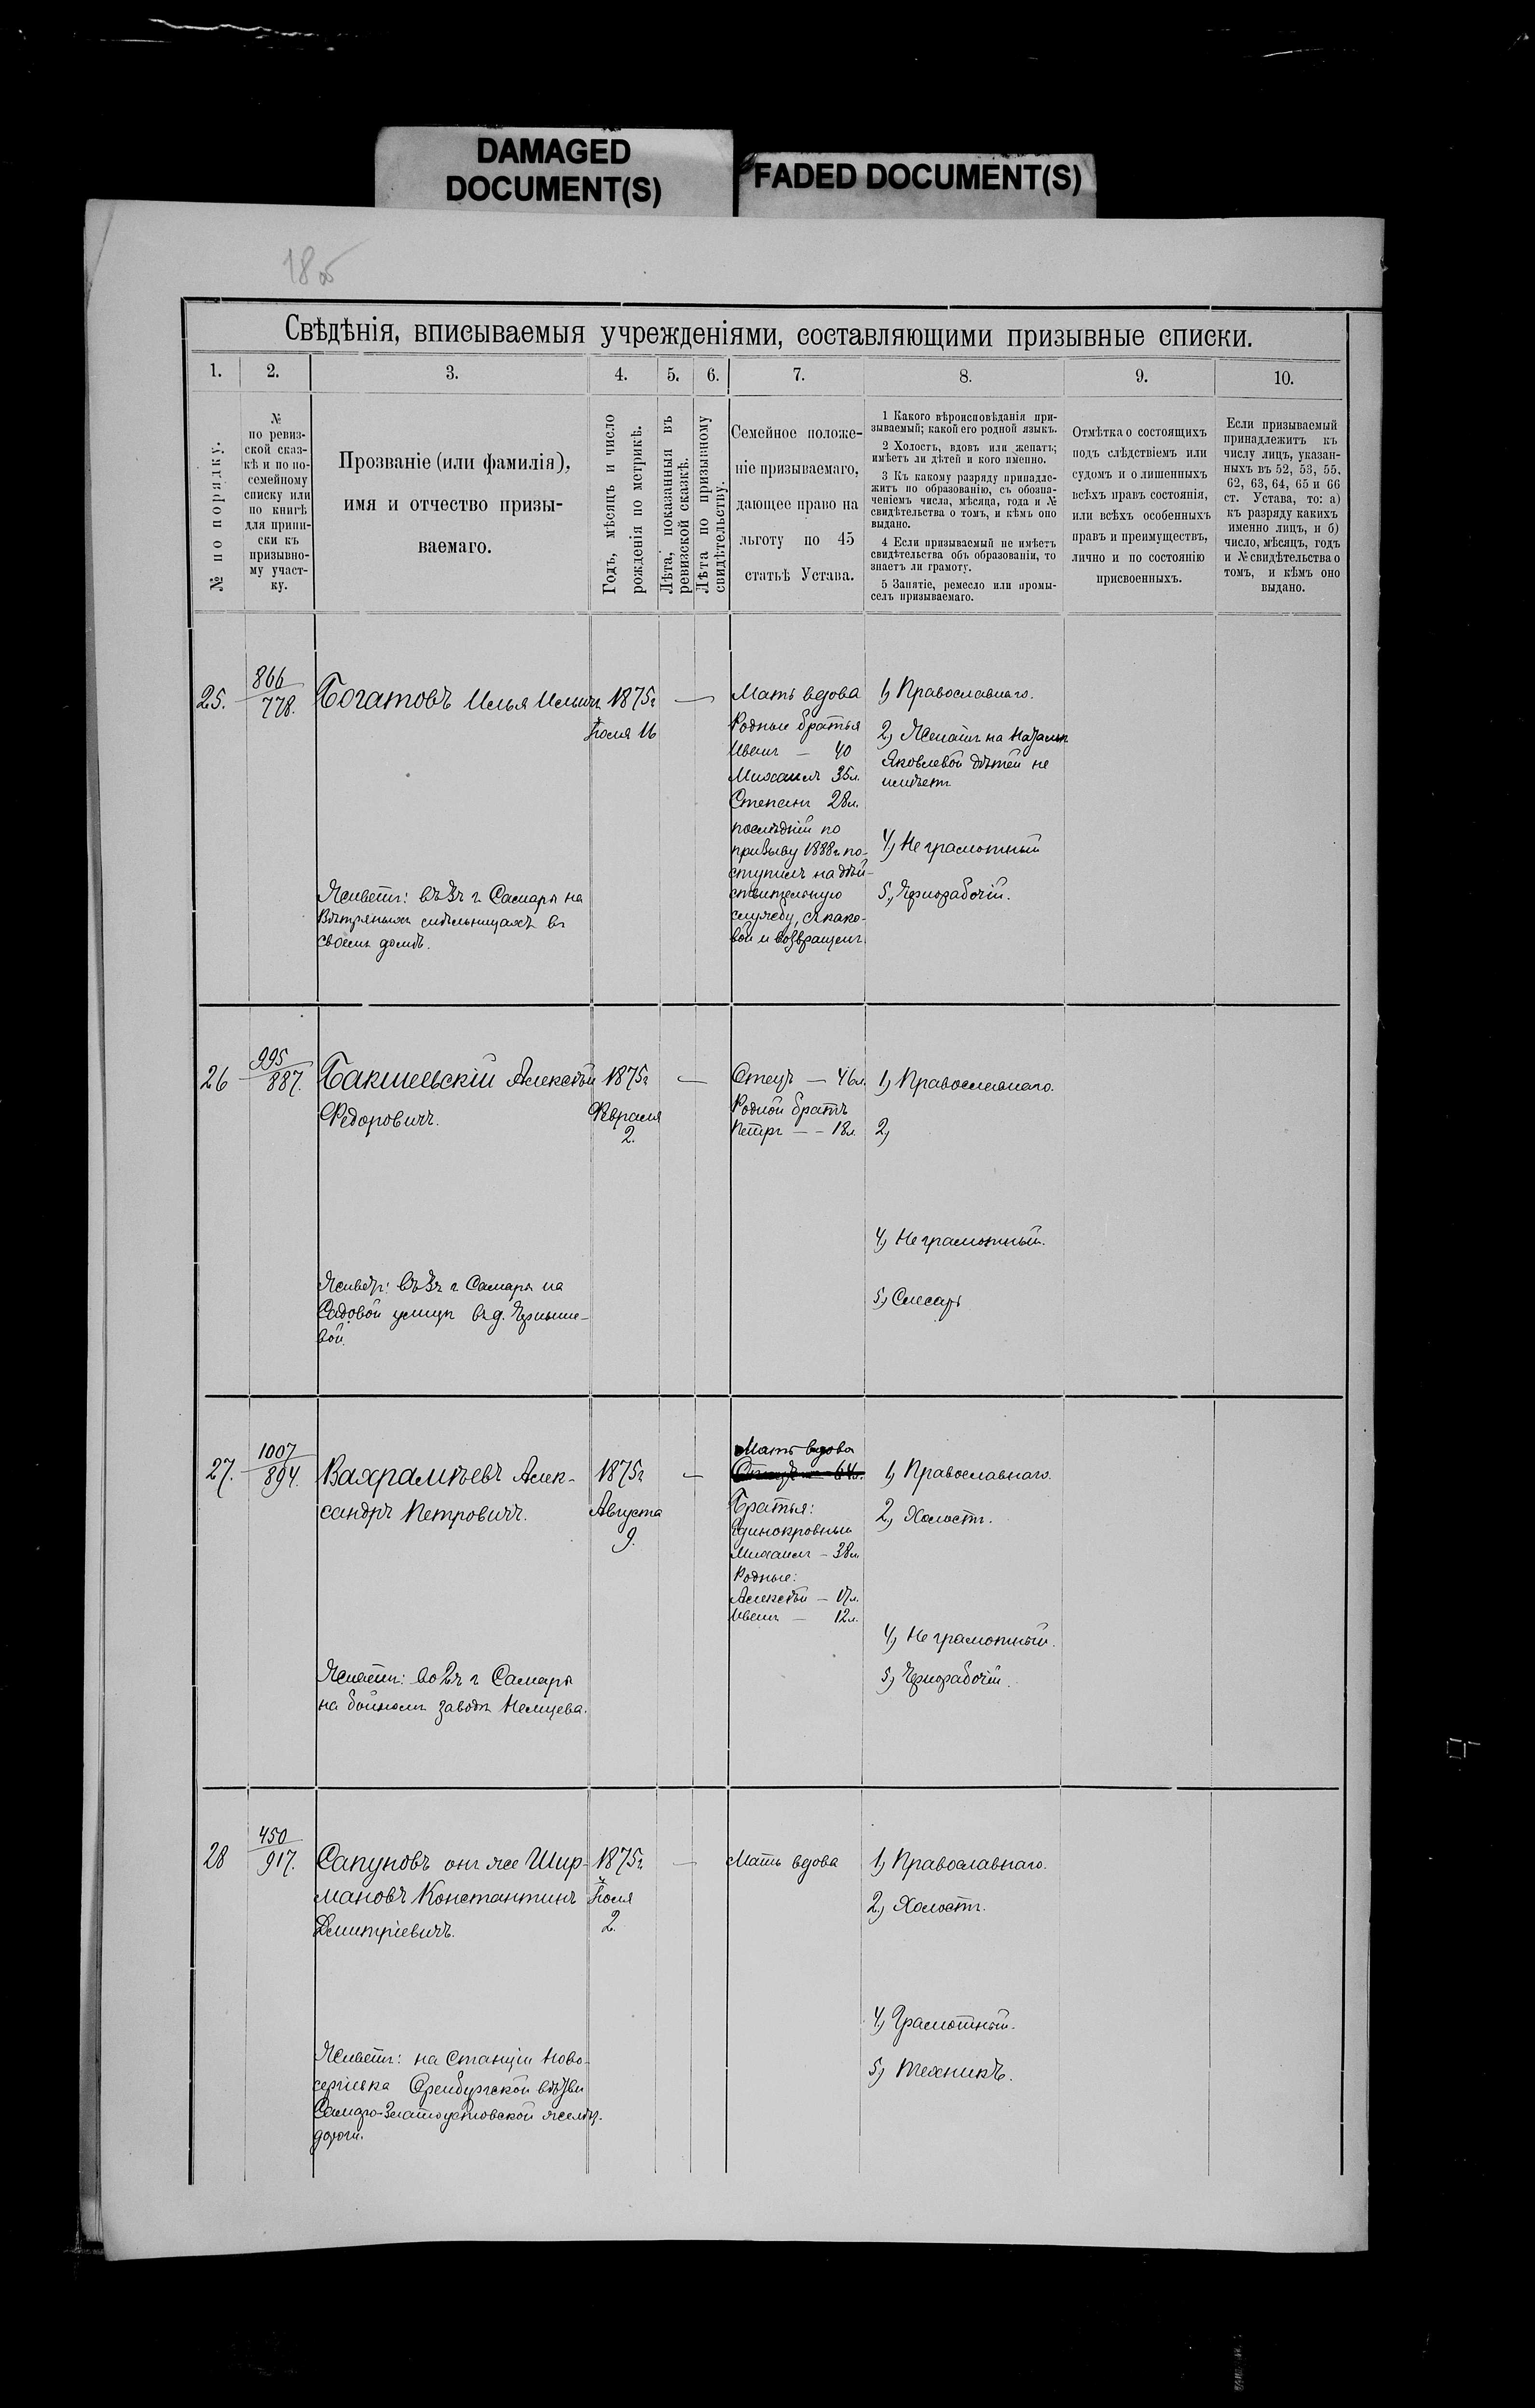 DAMAGED
DOCUMENT(S)
FADED DOCUMENT(S)
18об
Свѣдѣнія, вписываемыя учрежденіями, составляющими призывные списки.
1.
2.
3.
4.
5.
6.
7.
8.
9.
10.
№ по порядку.
№
по ревиз-
ской сказ-
кѣ и по по-
семейному
списку или
по книгѣ
для припи-
ски къ
призывно-
му участ-
ку.
Прозваніе (или фамилія),
имя и отчество призы-
ваемаго.
Годъ, мѣсяцъ и число
рожденія по метрикѣ.
Лѣта, показанныя въ
ревизской сказкѣ.
Лѣта по призывному
свидѣтельству.
Семейное положе-
ніе призываемаго,
дающее право на
льготу по 45
статьѣ Устава.
1 Какого вѣроисповѣданія при-
зываемый; какой его родной языкъ.
2 Холостъ, вдовъ или женатъ;
имѣетъ ли дѣтей и кого именно.
3 Къ какому разряду принадле-
житъ по образованію, съ обозна-
ченіемъ числа, мѣсяца, года и №
свидѣтельства о томъ, и кѣмъ оно
выдано.
4 Если призываемый не имѣетъ
свидѣтельства объ образованіи, то
знаетъ ли грамоту.
5 Занятіе, ремесло или промы-
селъ призываемаго.
Отмѣтка о состоящихъ
подъ слѣдствіемъ или
судомъ и о лишенныхъ
всѣхъ правъ состоянія,
или всѣхъ особенныхъ
правъ и преимуществъ,
лично и по состоянію
присвоенныхъ.
Если призываемый
принадлежитъ къ
числу лицъ, указан-
ныхъ въ 52, 53, 55,
62, 63, 64, 65 и 66
ст. Устава, то: а)
къ разряду какихъ
именно лицъ, и б)
число, мѣсяцъ, годъ
и № свидѣтельства о
томъ, и кѣмъ оно
выдано.
25.
866
778.
Богатовъ Илья Ильичъ
Живетъ: въ 3ч г. Самары на
Вѣтряныхъ мѣльницахъ въ
своемъ домѣ.
1875г
Іюля 16
—
Мать вдова
Родные братья
Иванъ — 40
Михаилъ 35л.
Степанъ 28л.
послѣдній по
призыву 1888г. по-
ступилъ на дѣй-
ствительную
службу, съ како-
вой и возвращенъ.
1) Православнаго.
2) Женатъ на Натальи
Яковлевой дѣтей не
имѣетъ
4) Неграмотный
5) Чернорабочій.
26
995
887.
Бакшевскій Алексѣй
Федоровичъ.
Живетъ: въ 3ч г Самары на
Садовой улицѣ въ д. Черныше-
вой.
1875г
Февраля
2.
—
Отецъ — 46л.
Родной братъ
Петръ — — 18л.
1) Православнаго.
2)
4) Неграмотный.
5) Слесарь
27.
1007
894.
Вахрамѣевъ Алек-
сандръ Петровичъ.
Живетъ: во 2ч г Самары
на бойномъ заводѣ Немцева.
1875г
Августа
9.
—
Мать вдова
Отецъ — 64л.
Братья:
Единокровный
Михаилъ — 38л
Родные:
Алексѣй — 17л.
Иванъ — 12л.
1) Православнаго.
2) Холостъ.
4) Неграмотный.
5) Чернорабочій.
28
450
917.
Сапуновъ онъ же Шир-
мановъ Константинъ
Дмитріевичъ.
Живетъ: на Станціи Ново-
сергіевка Оренбургской вѣтви
Самаро-Златоустовской желѣз.
дороги.
1875г
Іюля
2.
—
Мать вдова
1) Православнаго.
2) Холостъ.
4) Грамотный.
5) Техникъ.